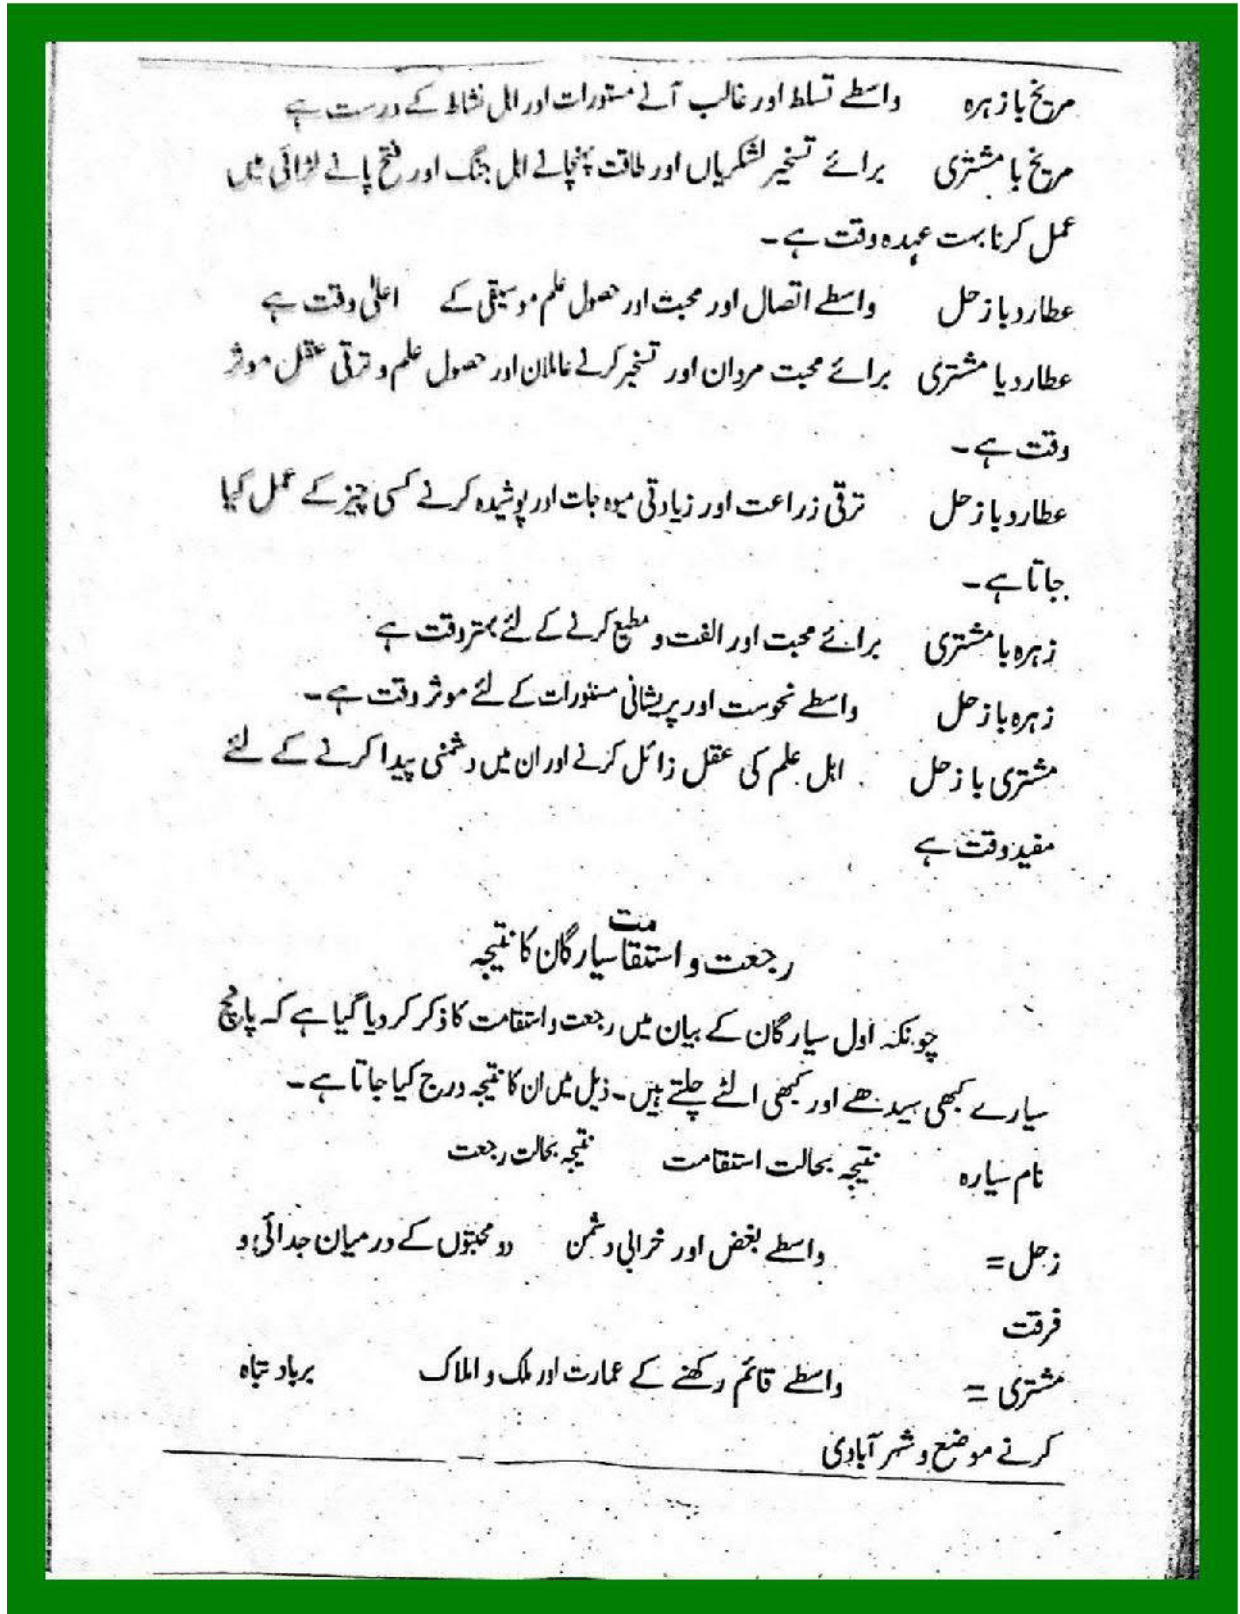 مریخ بازہرہ واسطے تسلط اور غالب آنے مستورات اور اہل نشاط کے درست ہے
مریخ با مشتری برائے تسخیر لشکریاں اور طاقت پہنچانے اہل جنگ اور فتح پانے لڑائی میں
عمل کرنا بہت عمدہ وقت ہے۔
عطارد با زحل واسطے اتصال اور محبت اور حصول علم موسیقی کے اعلیٰ وقت ہے
عطارد یا مشتری برائے محبت مردان اور تسخیر کرنے عاملان اور حصول علم و ترقی عقل موثر
وقت ہے۔
عطارد با زحل ترقی زراعت اور زیادتی میوہ جات اور پوشیدہ کرنے کسی چیز کے عمل کیا
جاتا ہے۔
زہرہ با مشتری برائے محبت اور الفت و مطیع کرنے کے لئے بہتر وقت ہے
زہرہ با زحل واسطے نحوست اور پریشانی مستورات کے لئے موثر وقت ہے۔
مشتری با زحل اہل علم کی عقل زائل کرنے اور ان میں دشمنی پیدا کرنے کے لئے
مفید وقت ہے
مت
رجعت و استقا سیارگان کا نتیجہ
چونکہ اول سیارگان کے بیان میں رجعت و استقامت کا ذکر کر دیا گیا ہے کہ پانچ
سیارے کبھی سیدھے اور کبھی الٹے چلتے ہیں۔ ذیل میں ان کا نتیجہ درج کیا جاتا ہے۔
نام سیارہ نتیجہ بحالت استقامت نتیجہ بحالت رجعت
زحل = واسطے بغض اور خرابی دشمن دو محبتوں کے درمیان جدائی و
فرقت
مشتری = واسطے قائم رکھنے کے عمارت اور ملک و املاک برباد تباہ
کرنے موضع و شہر آبادی